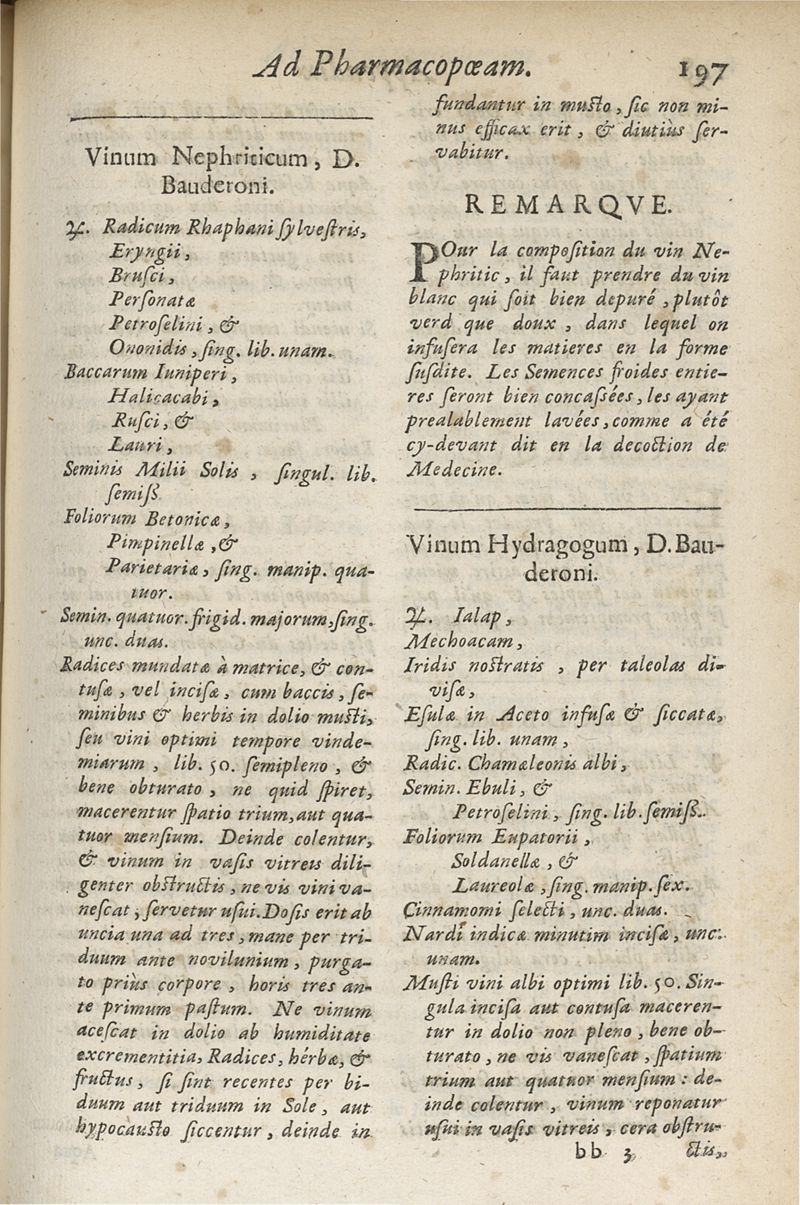 Ad Pharmacopœam. 197
Vinum Nephriticum, D.
Bauderoni.
♃. Radicum Rhaphani ſylveſtris,
Eryngii,
Bruſci,
Perſonatæ
Petroſelini, &
Ononidis, ſing. lib. unam.
Baccarum Iuniperi,
Halicacabi,
Ruſci, &
Lauri,
Seminis Milii Solis, ſingul. lib.
ſemiß.
Foliorum Betonicæ,
Pimpinellæ, &
Parietariæ, ſing. manip. qua-
tuor.
Semin. quatuor. frigid. majorum, ſing.
unc. duas.
Radices mundatæ à matrice, & con-
tuſæ, vel inciſæ, cum baccis, ſe-
minibus & herbis in dolio muſti,
ſeu vini optimi tempore vinde-
miarum, lib. 50. ſemipleno, &
bene obturato, ne quid ſpiret,
macerentur ſpatio trium, aut qua-
tuor menſium. Deinde colentur,
& vinum in vaſis vitreis dili-
genter obſtructis, ne vis vini va-
neſcat, ſervetur uſui. Doſis erit ab
uncia una ad tres, mane per tri-
duum ante novilunium, purga-
to priùs corpore, horis tres an-
te primum paſtum. Ne vinum
aceſcat in dolio ab humiditate
excrementitia, Radices, hérbæ, &
fructus, ſi ſint recentes per bi-
duum aut triduum in Sole, aut
hypocauſto ſiccentur, deinde in
fundantur in muſto, ſic non mi-
nus efficax erit, & diutiùs ſer-
vabitur.
REMARQVE.
POur la compoſition du vin Ne-
phritic, il faut prendre du vin
blanc qui ſoit bien depuré, plutôt
verd que doux, dans lequel on
infuſera les matieres en la forme
ſuſdite. Les Semences froides entie-
res ſeront bien concaſsées, les ayant
prealablement lavées, comme a été
cy-devant dit en la decoction de
Medecine.
Vinum Hydragogum, D. Bau-
deroni.
♃. Ialap,
Mechoacam,
Iridis noſtratis, per taleolas di-
viſæ,
Eſulæ in Aceto infuſæ & ſiccatæ,
ſing. lib. unam,
Radic. Chamæleonis albi,
Semin. Ebuli, &
Petroſelini, ſing. lib. ſemiß.
Foliorum Eupatorii,
Soldanellæ, &
Laureolæ, ſing. manip. ſex.
Cinnamomi ſelecti, unc. duas.
Nardi indicæ minutim inciſæ, unc.
unam.
Muſti vini albi optimi lib. 50. Sin-
gula inciſa aut contuſa maceren-
tur in dolio non pleno, bene ob-
turato, ne vis vaneſcat, ſpatium
trium aut quatuor menſium: de-
inde colentur, vinum reponatur
uſui in vaſis vitreis, cera obſtru-
bb 3 ctis,